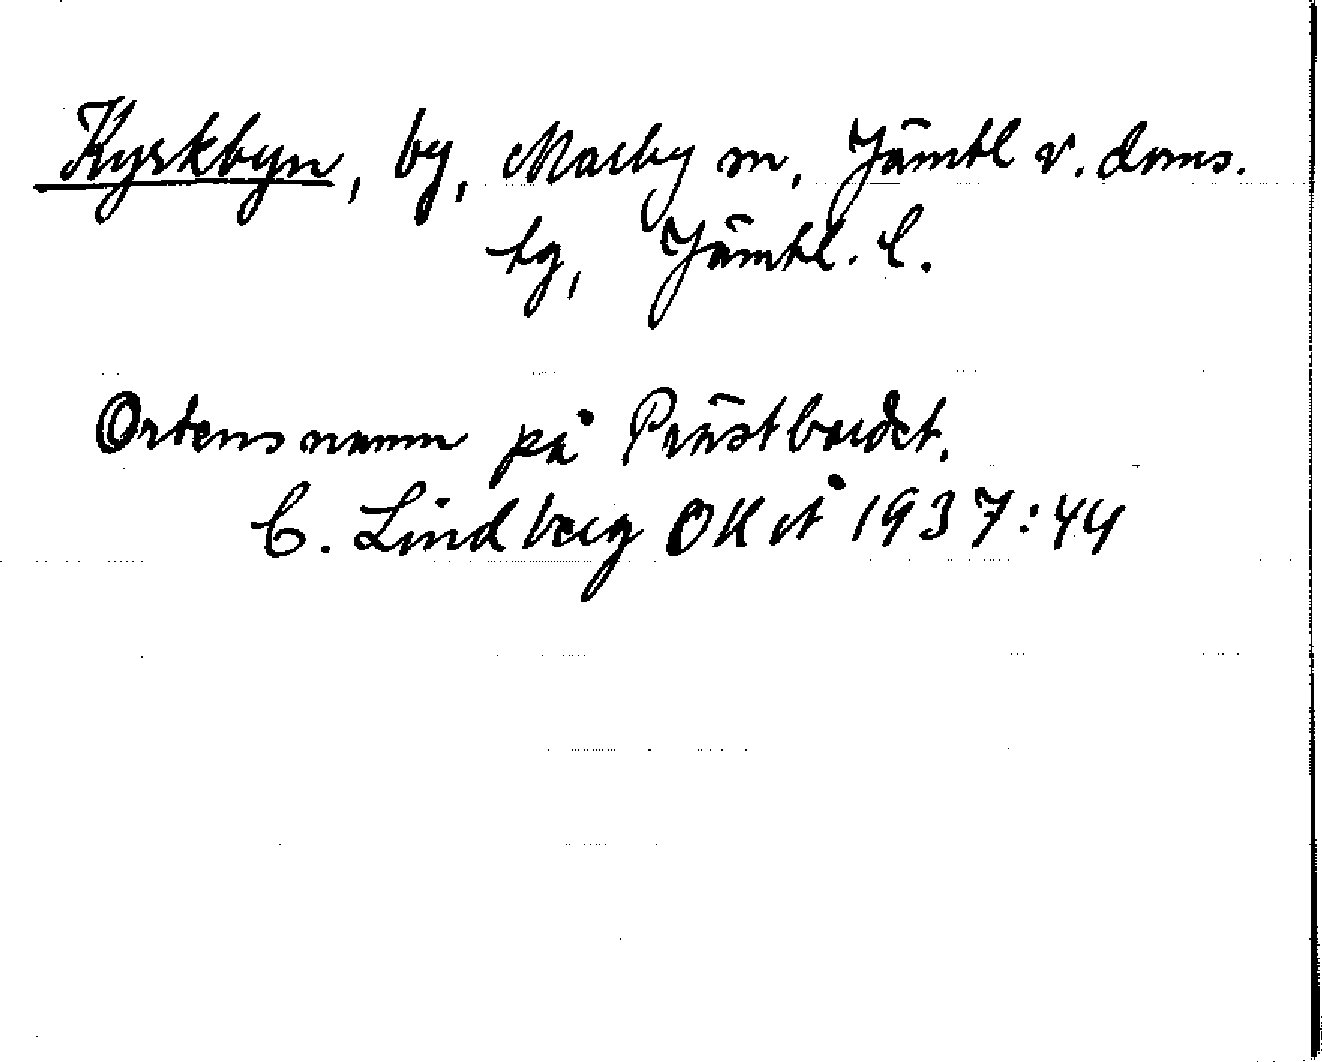 Kyrkbyn, by, Marby sn, Jämtl v. doms.
tg, Jämtl. l.
Ortens namn på Prästbordet.
C. Lindberg OKÅ 1937:44